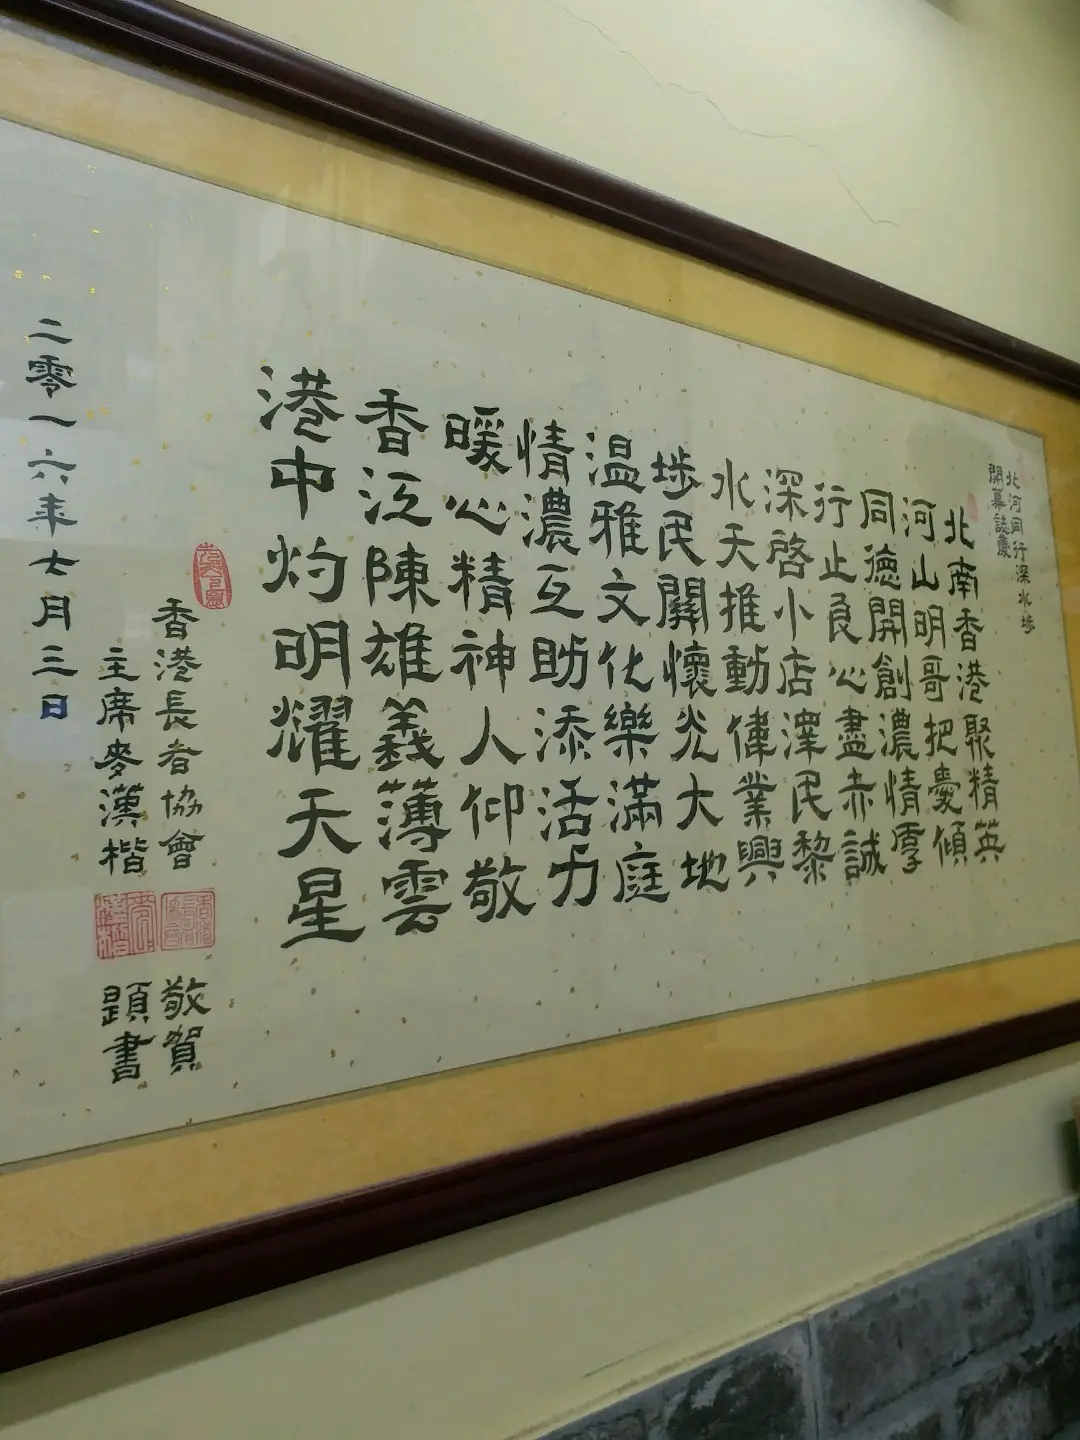 北河同行深水埗
開幕誌慶
北南香港聚精英
河山明哥把憂傾
同德開創濃情厚
行止良心盡赤誠
深啓小店澤民黎
水天推動偉業興
埗民關懷光大地
温雅文化樂滿庭
情濃互助添活力
暖心精神人仰敬
香江陳雄義薄雲
港中灼明耀天星
香港長者協會 敬賀
主席麥漢楷 題書
二零一六年七月三日